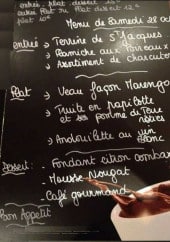 entrée, plat, dessert 16€
entrée Plat ou Plat dessert 12€
plat 10€
Menu de Samedi 28 oc
entrée → Terrine de St Jacques
→ aux Poireaux
→ assortiment de charcute
Plat → Veau façon Marengo
→ Truite en papillotte
et ses pomme de Terre
→ Andouillette au vin
Blanc
Dessert : - Fondant citron
- Mousse Nougat
- Café gourmand
Bon Appetit